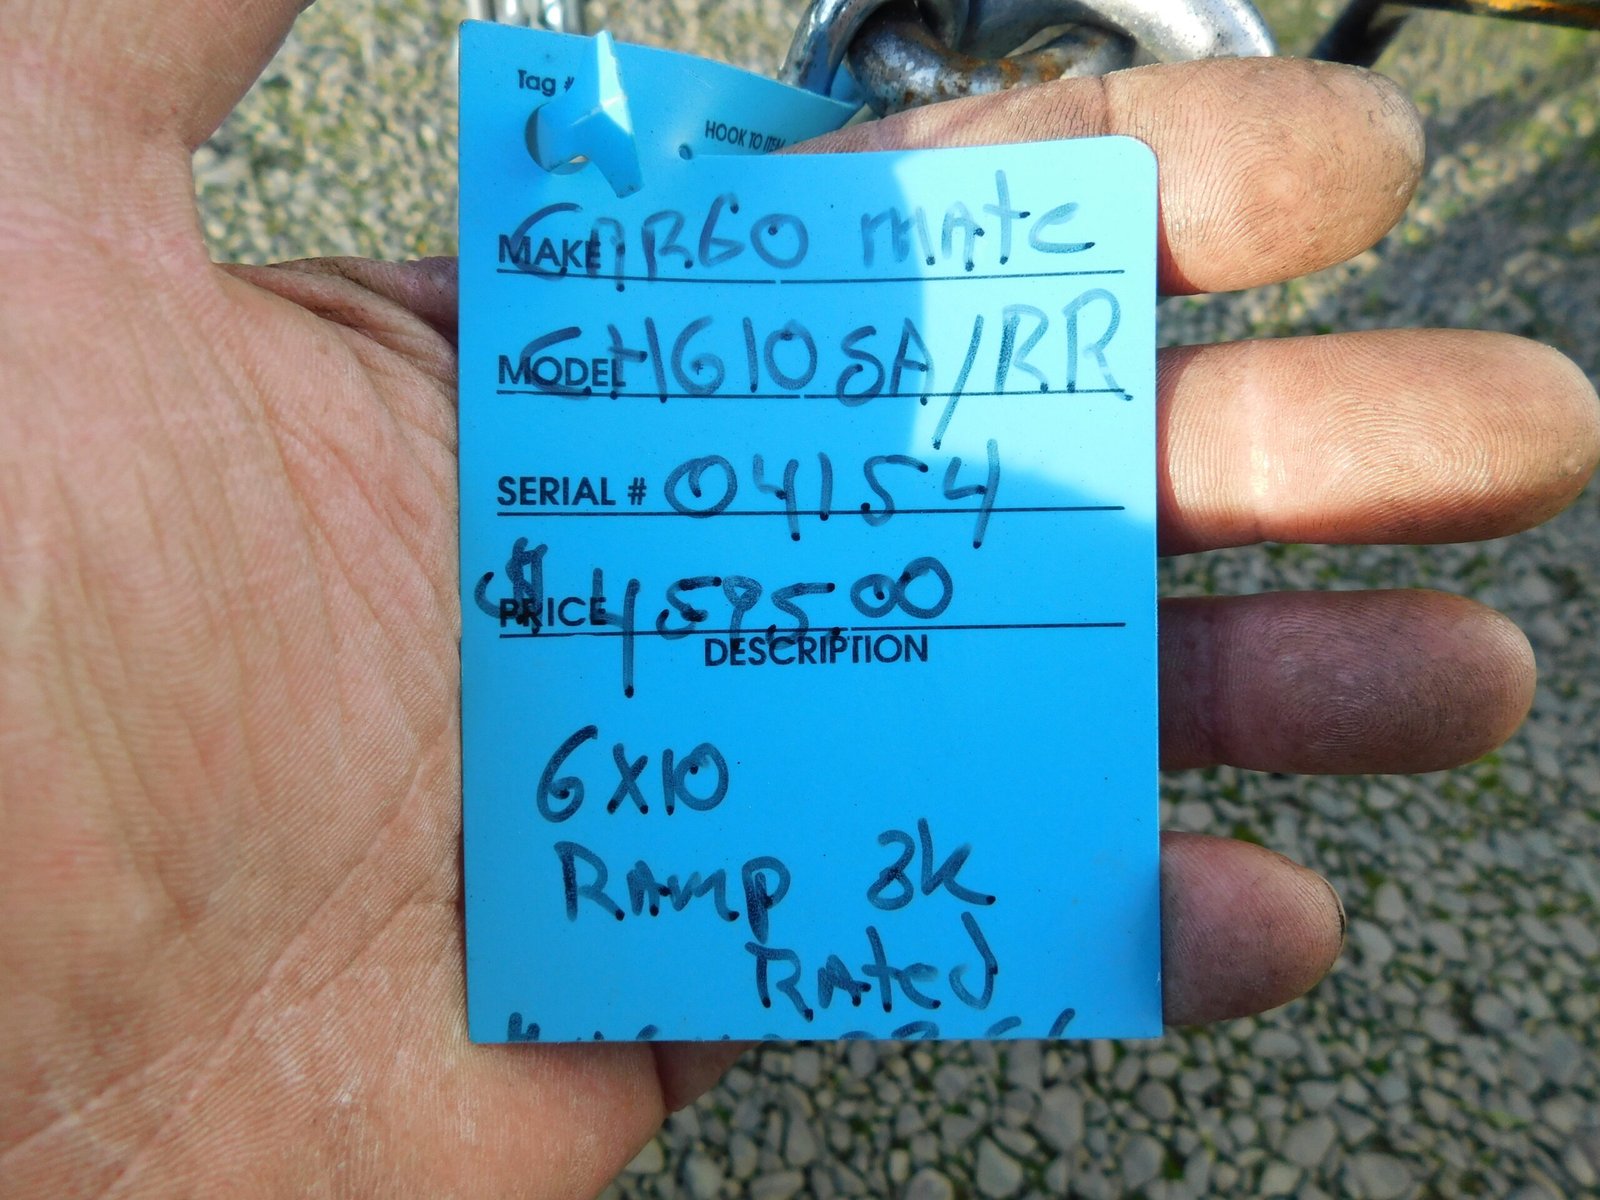 Tag #
HOOK TO ITEM
MAKE CARGO MATE
MODEL CH610SA/RR
SERIAL # 04154
PRICE $4595.00
DESCRIPTION
6X10
RAMP 3k
RATED